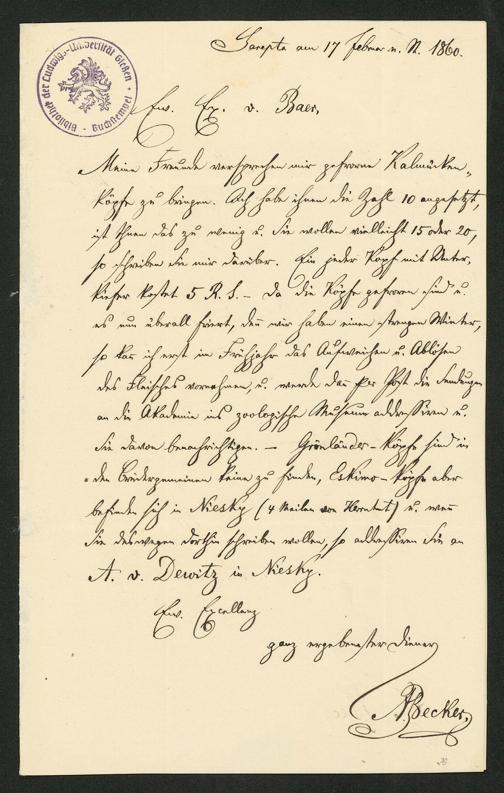 Sarepta am 17 Februar n. St. 1860.
Bibliothek der Ludwigs-Universität Gießen • Buchstempel •
Ew. Ex. v. Baer,
Meine Freunde versprechen mir gefrorne Kalmücken-
köpfe zu bringen. Ich habe ihnen die Zahl 10 angesetzt,
ist Ihnen das zu wenig u. Sie wollen vielleicht 15 oder 20,
so schreiben Sie mir darüber. Ein jeder Kopf mit Unter-
kiefer kostet 5 R. S. – Da die Köpfe gefroren sind u.
es nun überall friert, denn wir haben einen strengen Winter,
so kan ich erst im Frühjahr das Aufweichen u. Ablösen
des Fleisches vornehmen, u. werde dan per Post die Sendungen
an die Akademie ins zoologische Museum addressiren u.
Sie davon benachrichtigen. — Grönländer-köpfe sind in
den Brüdergemeinen keine zu finden, Eskimo-köpfe aber
befinden sich in Niesky (4 Meilen von Herrnhut) u. wen
Sie deswegen dorthin schreiben wollen, so addressiren Sie an
A. v. Dewitz in Niesky.
Ew. Excellenz
ganz ergebenster Diener
A Becker,